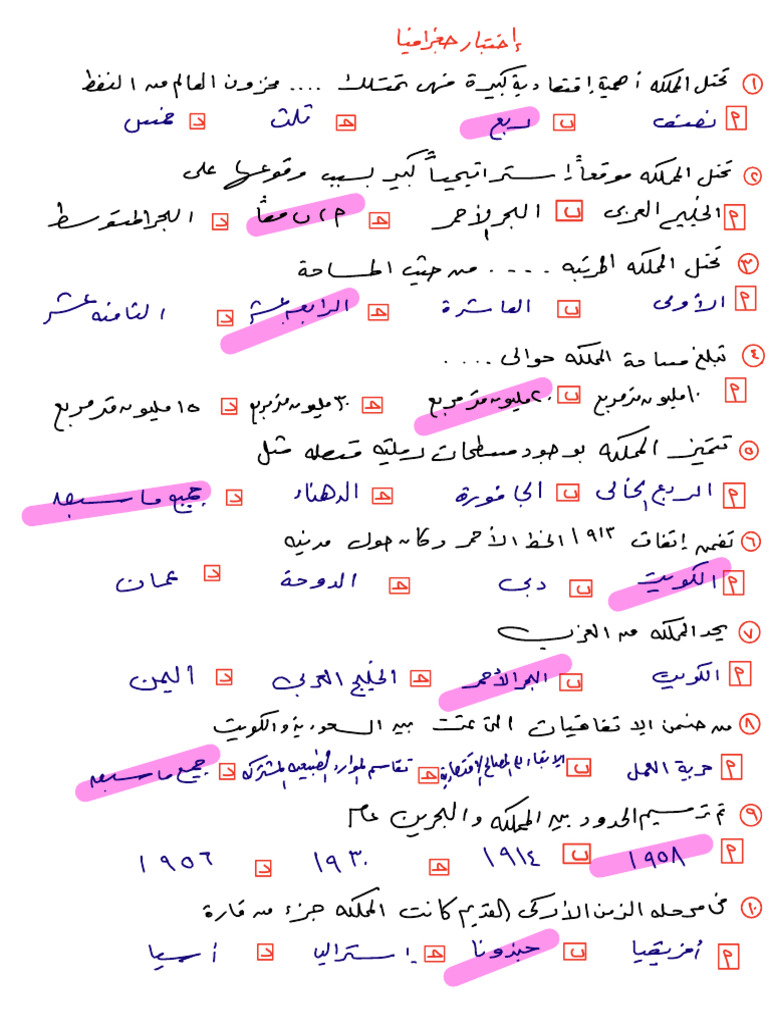 إختبار جغرافيا
١ تحتل المملكه أهمية إقتصادية كبيرة فهى تمتلك .... مخزون العالم من النفط
م نصف ب ربع هـ ثلث د خمس
٢ تحتل المملكه موقعاً إستراتيجياً كبير بسبب وقوعها على
م الخليج العربى ب البحر الأحمر هـ م، ب معاً د البحر المتوسط
٣ تحتل المملكه المرتبه .... من حيث المساحة
م الأولى ب العاشرة هـ الرابعه عشر د الثامنه عشر
٤ تبلغ مساحة المملكه حوالى ....
م ١٠ مليون متر مربع ب ٢٠ مليون متر مربع هـ ٣٠ مليون متر مربع د ١٥ مليون متر مربع
٥ تتميز المملكه بوجود مسطحات رمليه متصله مثل
م الربع الخالى ب الجافورة هـ الدهناء د جميع ما سبق
٦ تضمن إتفاق ١٩١٣ الخط الأحمر وكان حول مدنيه
م الكويت ب دبى هـ الدوحة د عمان
٧ يحد المملكه من الغرب
م الكويت ب البحر الأحمر هـ الخليج العربى د اليمن
٨ من ضمن الاتفاقيات التى تمت بين السعودية والكويت
م حرية العمل ب المصالح الإقتصادية هـ تقاسم الموارد الطبيعيه المشتركه د جميع ما سبق
٩ تم ترسيم الحدود بين المملكه والبحرين عام
م ١٩٥٨ ب ١٩١٤ هـ ١٩٣٠ د ١٩٥٦
١٠ فى مرحله الزمن الأركى القديم كانت المملكه جزء من قارة
م أفريقيا ب جندونا هـ إستراليا د أسيا